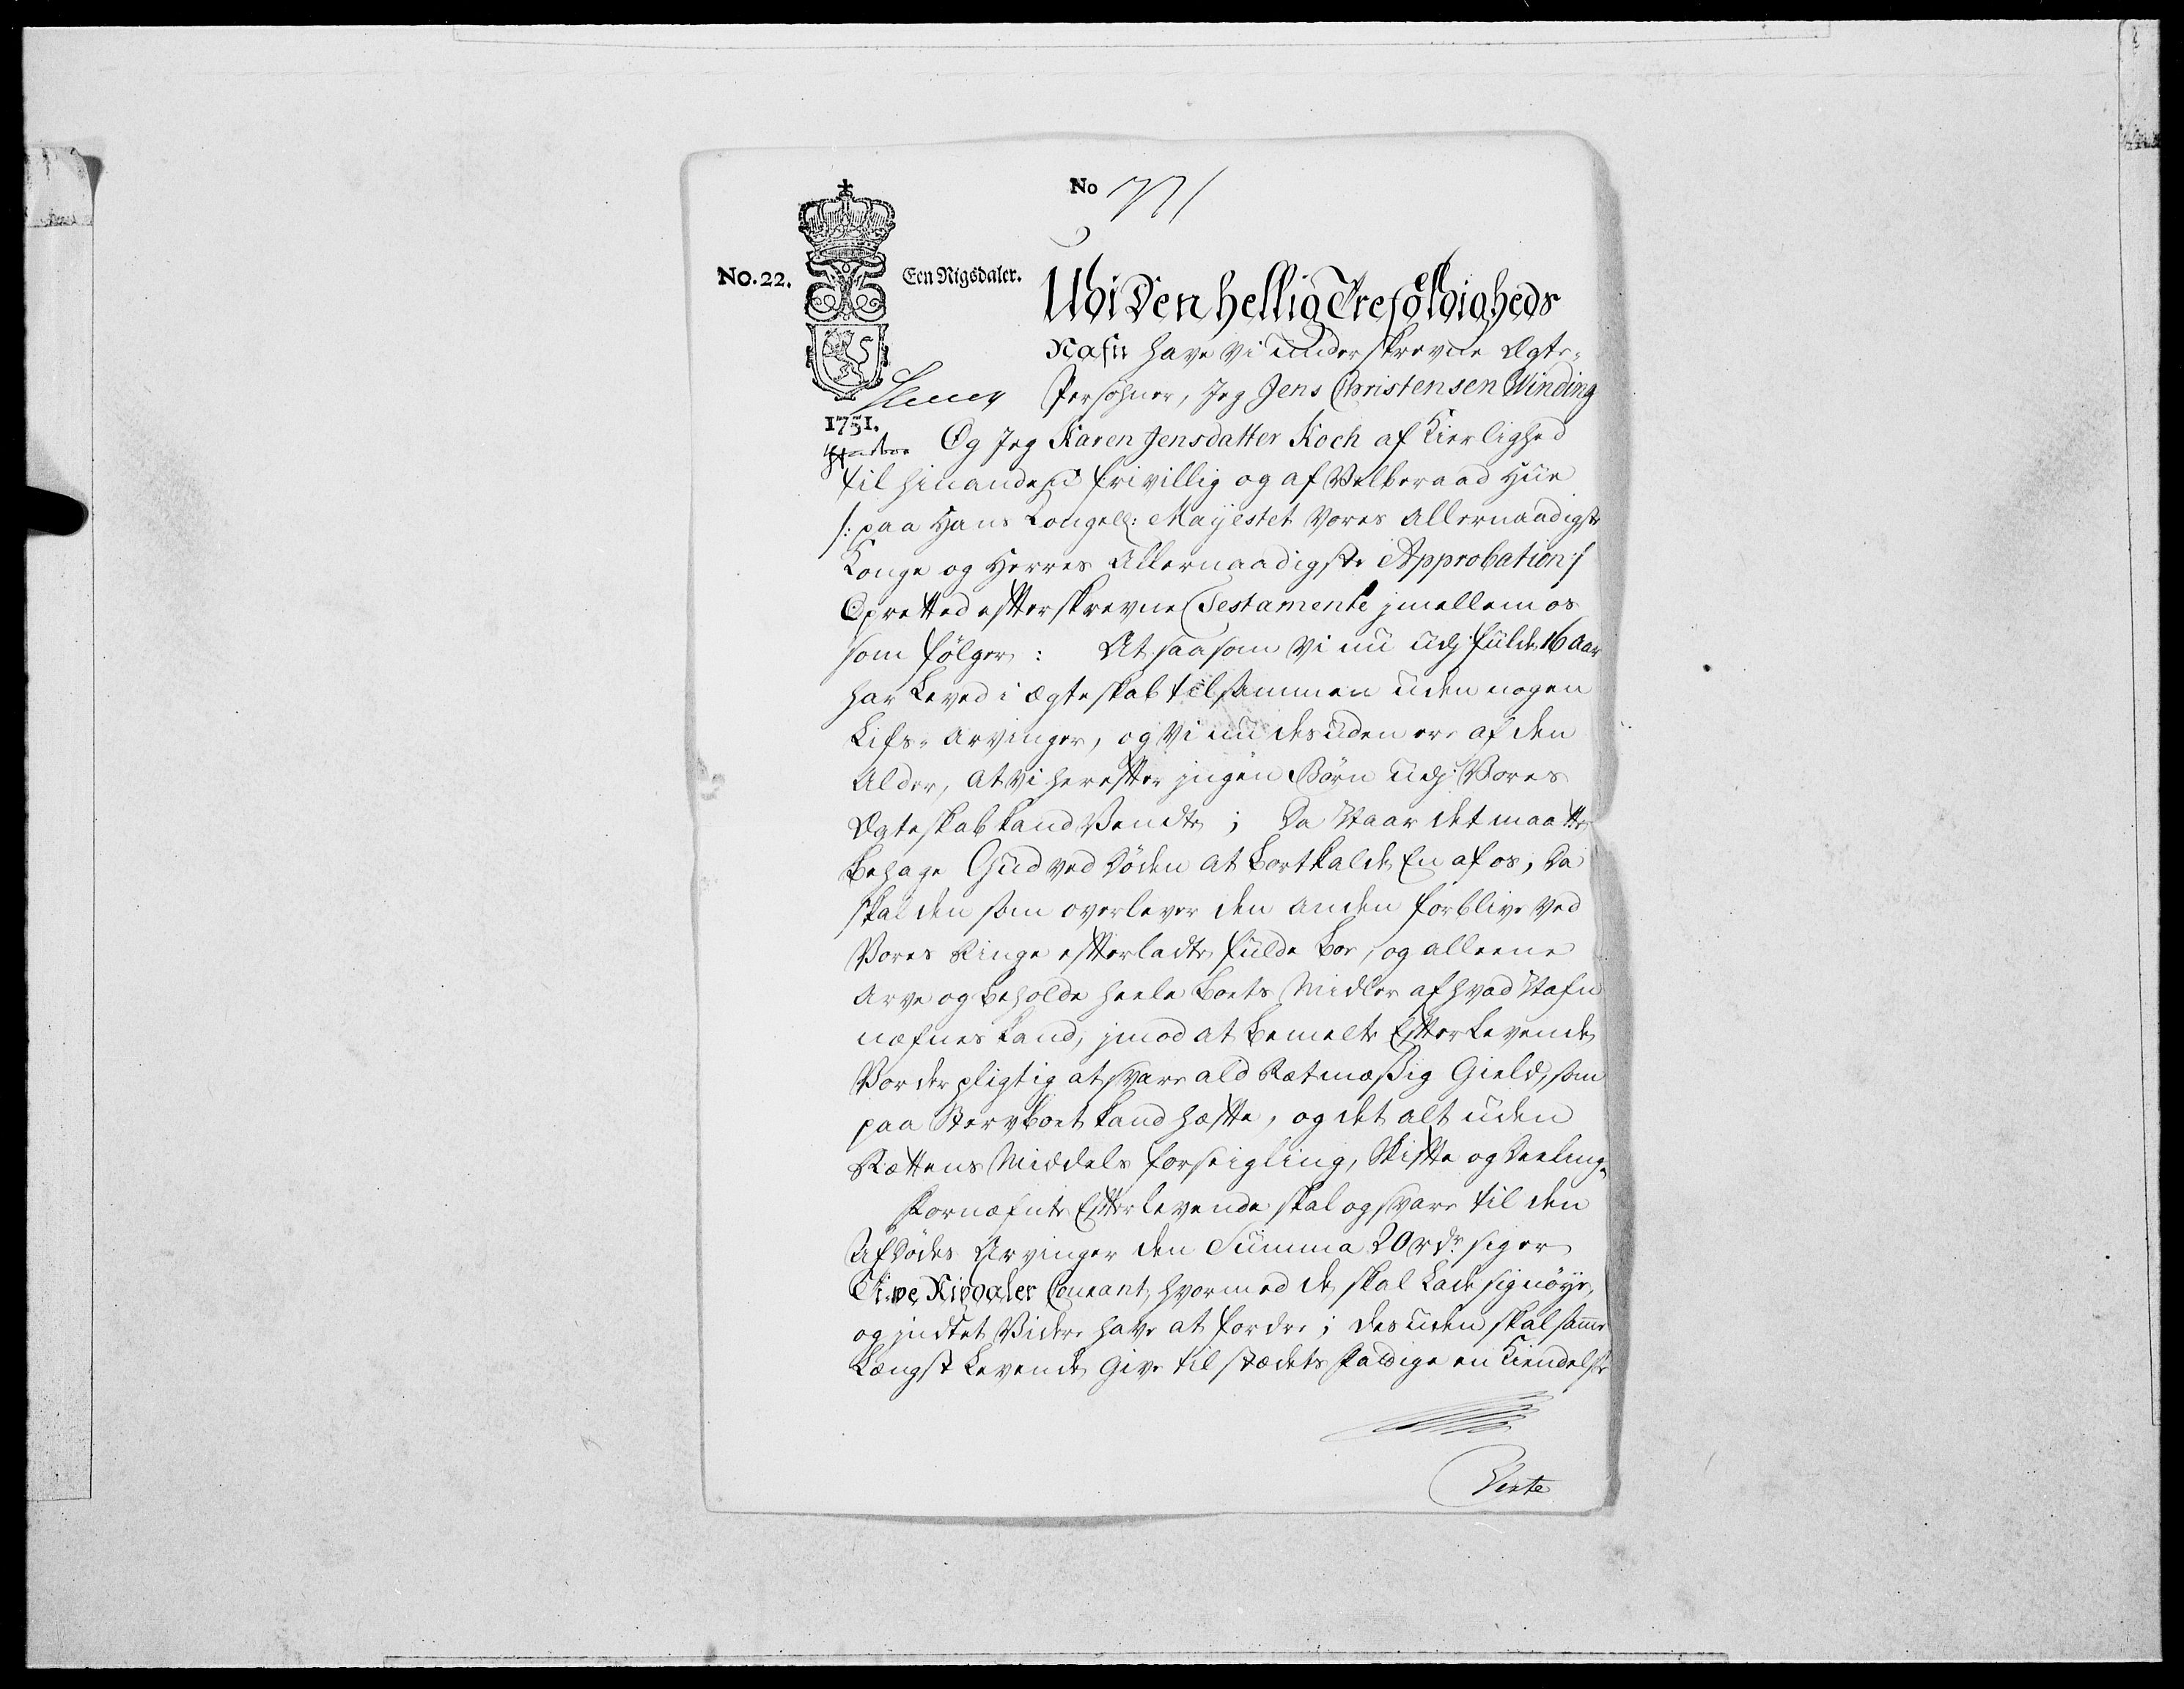 No 771
No. 22. Een Rigsdaler.
Udi Den hellig Trefoldigheds
Nafn have Vi underskrevne Ægte-
Persohner, Jeg Jens Christensen Winding
1751.
Og Jeg Karen Jensdatter Koch af Kierlighed
til hinanden frivillig og af Velberaad Hue
/: paa Hans Kongell: Mayestet Vores Allernaadigste
Konge og Herres Allernaadigste Approbation :/
Opretted efterskrevne Testamente jmellem os
som følger: At saasom Vi nu udj fulde 16 Aar
har Leved i Ægteskab tilsammen uden nogen
Lifs-Arvinger, og Vi nu desuden ere af den
Alder, at Vi herefter jngen Børn udj Vores
Ægteskab kand Vendte; Da Naar det maatte
behage Gud ved Døden at bortkalde En af os, Da
skal den som overlever den anden forblive Ved
Vores Ringe efterladte fulde Boe, og alleene
Arve og beholde heele Boets Midler af hvad Nafn
nefnes kand, jmod at bemelte Efterlevende
Vorder pligtig at svare ald Retmæßig Gield, som
paa Stervboet kand hæfte, og det alt uden
Rættens Middels forseigling, Skifte og Deeling.
Fornæfnte Efterlevende skal og svare til den
Afdødes Arvinger den Summa 20 rdr. siger
Tive Rixdaler Courant, hvormed de skal Lade sig nöye,
og jndtet Videre have at fordre; desuden skal samme
Længst Levende Give til stædets Fattige en Kiendelse
Verte